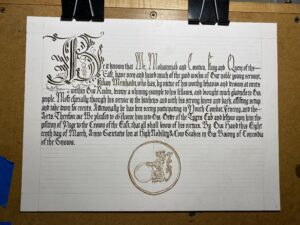 Be it known that We, Mohammad and                , King and Queen of the
East, have seen and heard much of the good works of Our noble young servant,
                    , who has, by virtue of his worthy behavior and renown at events
within Our Realm, brings a winning example to his fellows, and brought much gladness to Our
people. Most especially through his service in the kitchens and with his strong knees and back, assisting setup
and take down for events. Additionally he has been seeing participating in Youth Combat, Fencing, and the
Arts. Therefore are We pleased to           him into Our Order of the Tygers Cub and           upon him the
position of Page to the Crown of the East, that all shall know of his virtues. By Our Hand this Eight
       day of March, Anno Societatis       at High Nobility &             in Our Barony of Concordia
of the Snows.